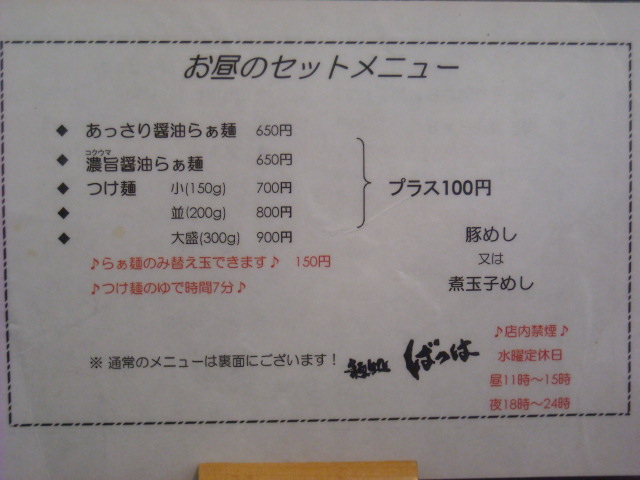 お昼のセットメニュー
◆ あっさり醤油らぁ麺 650円
コクウマ
◆ 濃旨醤油らぁ麺 650円
◆ つけ麺 小(150g) 700円
プラス100円
◆ 並(200g) 800円
◆ 大盛(300g) 900円
豚めし
又は
煮玉子めし
♪らぁ麺のみ替え玉できます♪ 150円
♪つけ麺のゆで時間7分♪
※ 通常のメニューは裏面にございます！
ばっは
♪店内禁煙♪
水曜定休日
昼11時～15時
夜18時～24時